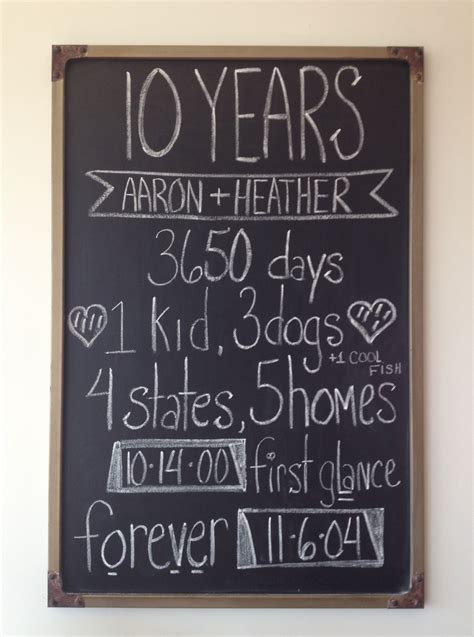 10 YEARS
AARON + HEATHER
3650 days
1 kid, 3 dogs
+1 COOL
FISH
4 states, 5 homes
10·14·00 first glance
forever 11·6·04